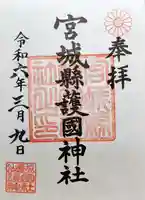 奉拝
宮城縣護國神社
令和六年三月九日